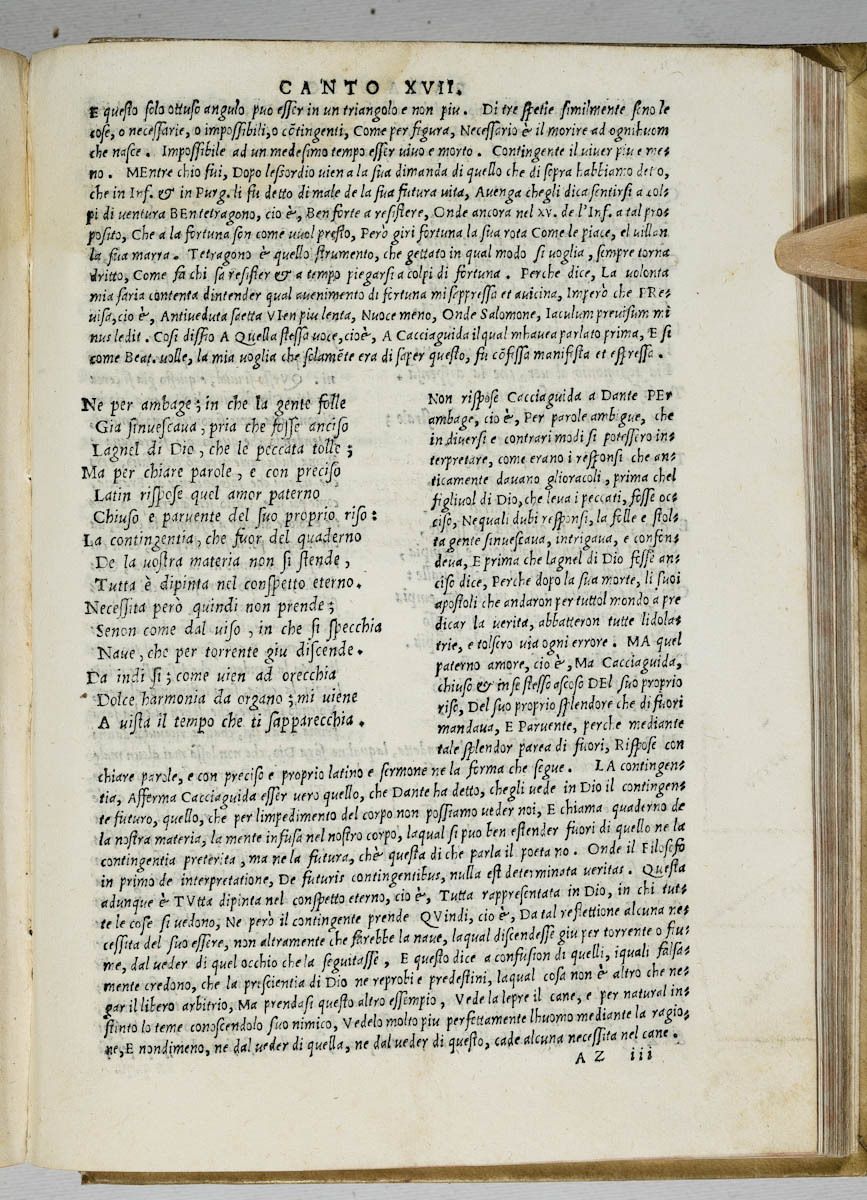 CANTO XVII.
E questo solo ottuso angulo puo esser in un triangolo e non piu. Di tre spetie similmente sono le
cose, o necessarie, o impossibili, o cōtingenti, Come per figura, Necessario è il morire ad ognihuom
che nasce. Impossibile ad un medesimo tempo esser uiuo e morto. Contingente il uiuer piu e me-
no. MEntre chio fui, Dopo lescordio uien a la sua dimanda di quello che di sopra habbiamo detto,
che in Inf. & in Purg. li fu detto di male de la sua futura uita, Auenga chegli dica sentirsi a col-
pi di uentura BEntetragono, cio è, Ben forte a resistere, Onde ancora nel xv. de l'Inf. a tal pro-
posito, Che a la fortuna son come uuol presto, Però giri fortuna la sua rota Come le piace, el uillan
la sua marra. Tetragono è quello strumento, che gettato in qual modo si uoglia, sempre torna
dritto, Come fa chi sa resister & a tempo piegarsi a colpi di fortuna. Perche dice, La uolonta
mia saria contenta dintender qual auenimento di fortuna mi seppressa et auicina, Imperò che PRe-
uisa, cio è, Antiueduta saetta VIen piu lenta, Nuoce meno, Onde Salomone, Iaculum preuisum mi
nus ledit. Cosi dissio A Quella stessa uoce, cioè, A Cacciaguida il qual mhauea parlato prima, E si
come Beat. uolle, la mia uoglia che solamēte era di saper questo, fu cōfissa manifista et espressa.
Ne per ambage; in che la gente folle
Gia sinuescaua, pria che fosse anciso
Lagnel di Dio, che le peccata tolle;
Ma per chiare parole, e con preciso
Latin rispose quel amor paterno
Chiuso e paruente del suo proprio riso:
La contingentia, che fuor del quaderno
De la uostra materia non si stende,
Tutta è dipinta nel conspetto eterno.
Necessita però quindi non prende;
Senon come dal uiso, in che si specchia
Naue, che per torrente giu discende.
Da indi si; come uien ad orecchia
Dolce harmonia da organo; mi uiene
A uista il tempo che ti sapparecchia.
Non rispose Cacciaguida a Dante PEr
ambage, cio è, Per parole ambigue, che
in diuersi e contrari modi si potessero in-
terpretare, come erano i responsi che an-
ticamente dauano glioracoli, prima chel
figliuol di Dio, che leua i peccati, fosse oc-
ciso, Nequali dubi responsi, la folle e stol-
ta gente sinuescaua, intrigaua, e confon-
deua, E prima che lagnel di Dio fosse an-
ciso dice, Perche dopo la sua morte, li suoi
apostoli che andaron per tuttol mondo a pre
dicar la uerita, abbatteron tutte lidola-
trie, e tolsero uia ogni errore. MA quel
paterno amore, cio è, Ma Cacciaguida,
chiuso & in se stesso ascoso DEl suo proprio
riso, Del suo proprio splendore che di fuori
mandaua, E Paruente, perche mediante
tale splendor parea di fuori, Rispose con
chiare parole, e con preciso e proprio latino e sermone ne la forma che segue. LA contingen-
tia, Afferma Cacciaguida esser uero quello, che Dante ha detto, chegli uede in Dio il contingen-
te futuro, quello, che per limpedimento del corpo non possiamo ueder noi, E chiama quaderno de
la nostra materia, la mente infusa nel nostro corpo, laqual si puo ben estender fuori di quello ne la
contingentia preterita, ma ne la futura, chè questa di che parla il poeta no. Onde il Filosofo
in primo de interpretatione, De futuris contingentibus, nulla est determinata ueritas. Questa
adunque è TVtta dipinta nel conspetto eterno, cio è, Tutta rappresentata in Dio, in chi tut-
te le cose si uedono, Ne però il contingente prende QVindi, cio è, Da tal reflettione alcuna ne-
cessita del suo essere, non altramente che farebbe la naue, laqual discendesse giu per torrente o fiu-
me, dal ueder di quel occhio che la seguitasse, E questo dice a confusion di quelli, iquali falsa-
mente credono, che la prescientia di Dio ne reprobi e predestini, laqual cosa non è altro che ne-
gar il libero arbitrio, Ma prendasi questo altro essempio, Vede la lepre il cane, e per natural in-
stinto lo teme conoscendolo suo nimico, Vedelo molto piu perfettamente lhuomo mediante la ragio-
ne, E nondimeno, ne dal ueder di quella, ne dal ueder di questo, cade alcuna necessita nel cane.
AZ iii